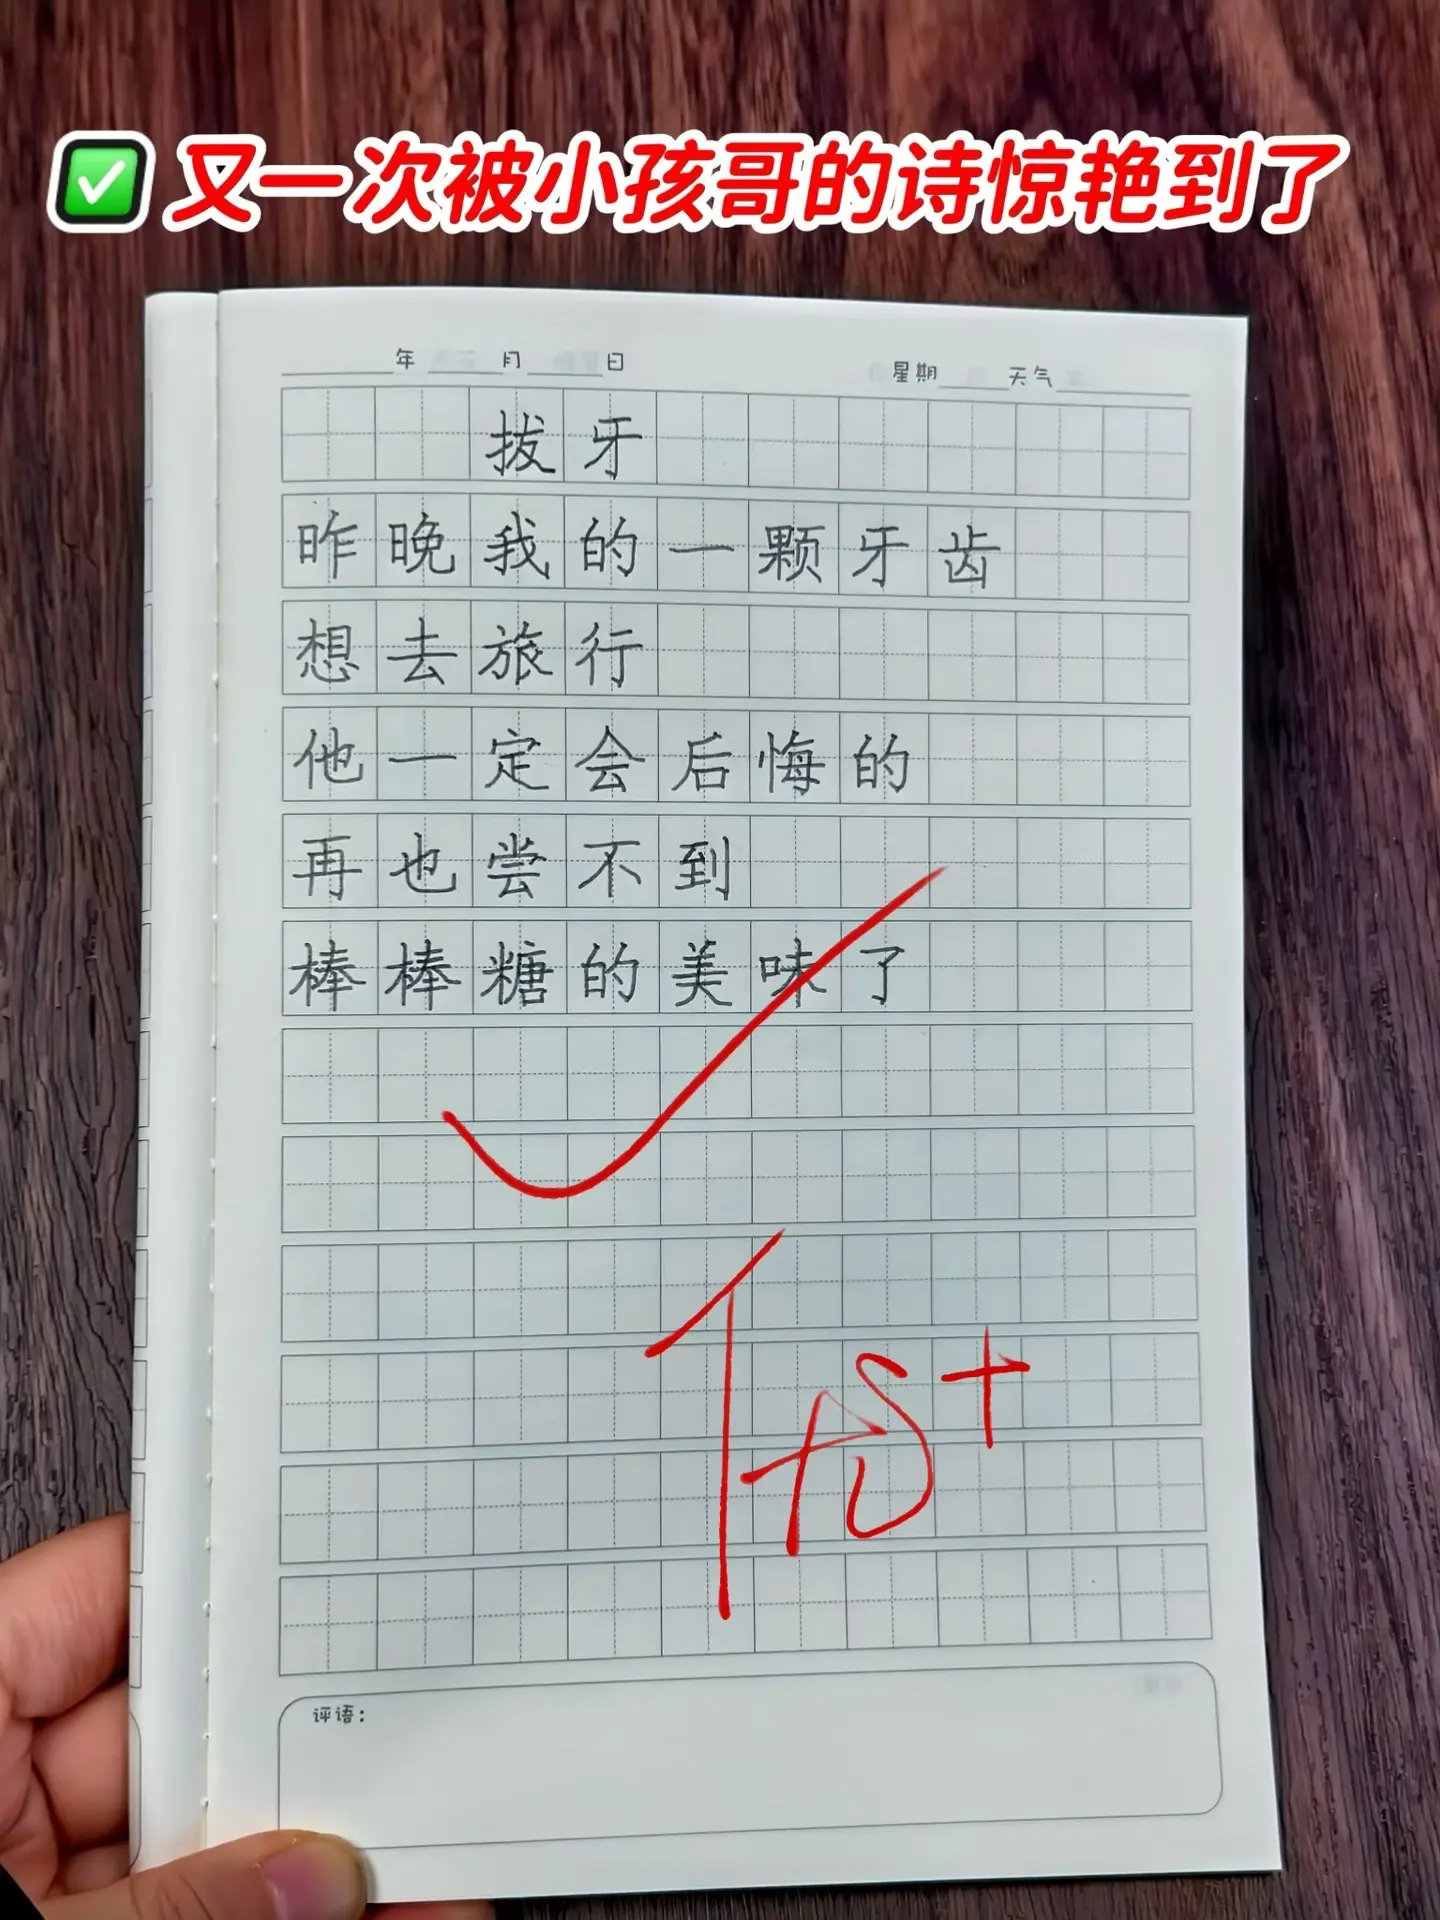 ✅又一次被小孩哥的诗惊艳到了
年 月 日 星期 天气
拔牙
昨晚我的一颗牙齿
想去旅行
他一定会后悔的
再也尝不到
棒棒糖的美味了
评语：